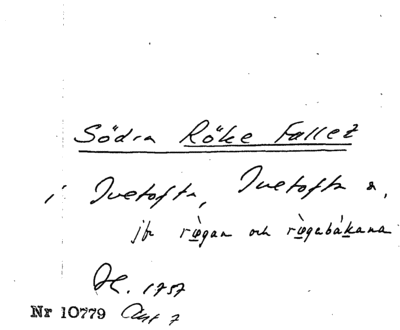 Södra Röke Fallet
i Ivetofta, Ivetofta s.
jfr rögan och rögabåkana
H. 1757
Nr 10779 7